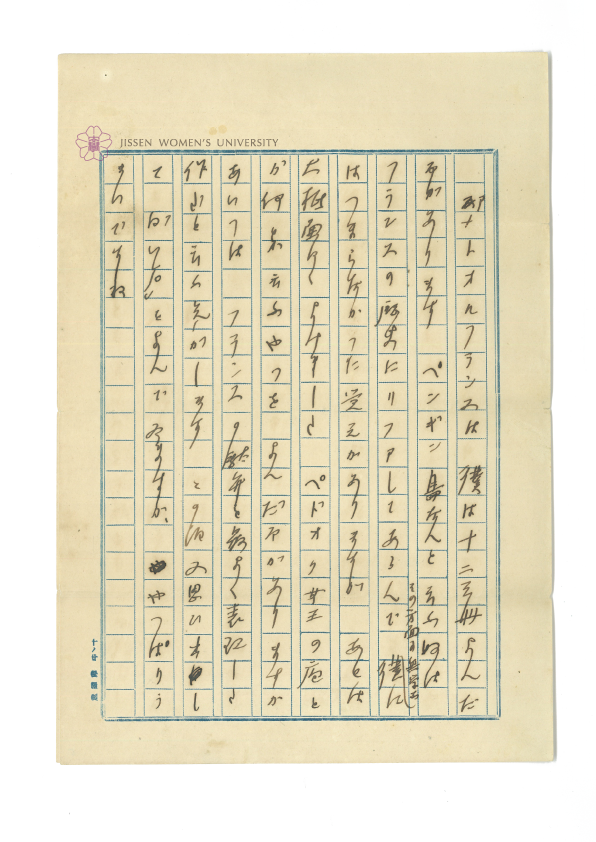 JISSEN WOMEN'S UNIVERSITY
アナトオルフランスは 僕は十二三冊よんだ
事があります ペンギン島なんと云ふ奴は
フランスの歴史にリファしてあるんで 僕に
はつまらなかつた覚えがありますが あとは
大抵面白くよみました ペドオク女王の庵と
か何とか云ふやつを よんだ事がありますか
あいつは フランスの を最よく表現した
作品と云ふ気がします この頃 思ひ出し
て 白い石 とよんで ゐますが、 やつぱりう
まいですね
十ノ廿